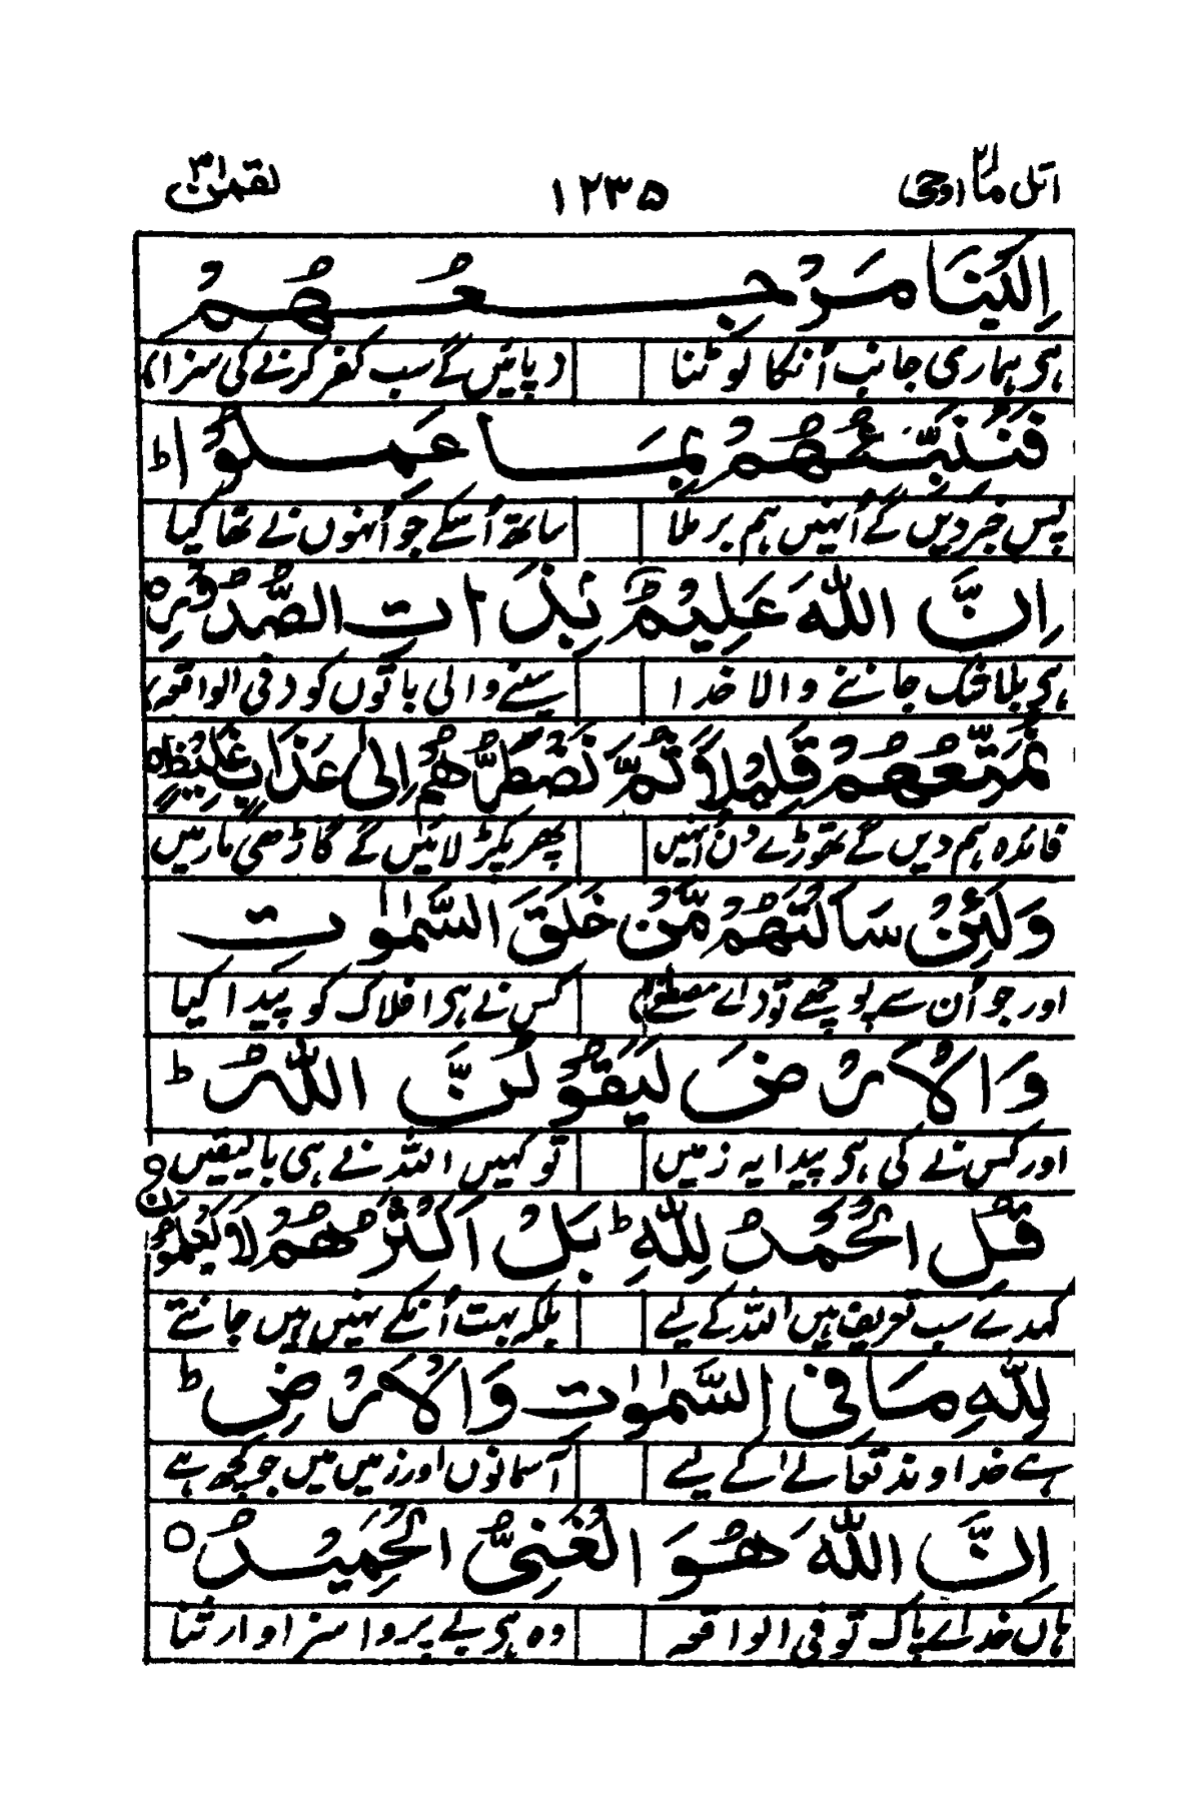 اتل ما اوحی ۲۱ ۱۲۳۵ لقمٰن ۳۱
اِلَیْنَا مَرْجِعُهُمْ
ہی ہماری جانب اُنکا لوٹنا دپائیں گے سب کفر کرنے کی سزا
فَنُنَبِّئُهُمْ بِمَا عَمِلُوْا ط
پس خبر دیں گے اُنہیں ہم بر ملا ساتھ اُسکے جو اُنہوں نے تھا کیا
اِنَّ اللّٰهَ عَلِیْمٌ بِذَاتِ الصُّدُوْرِ ○
ہی بلاشک جاننے والا خدا سینے والی باتوں کو دفی الواقعہ
نُمَتِّعُهُمْ قَلِیْلًا ثُمَّ نَضْطَرُّهُمْ اِلٰی عَذَابٍ غَلِیْظٍ ○
فائدہ ہم دیں گے تھوڑے دن اُنہیں پھر پکڑ لائیں گے گاڑھی مار میں
وَلَئِنْ سَاَلْتَهُمْ مَّنْ خَلَقَ السَّمٰوٰتِ
اور جو اُن سے پوچھے تو داے مصطفےٰ کس نے ہی افلاک کو پیدا کیا
وَالْاَرْضَ لَیَقُوْلُنَّ اللّٰهُ ط
اور کس نے کی ہی پیدا یہ زمیں تو کہیں اللہ نے ہی بالیقیں
قُلِ الْحَمْدُ لِلّٰهِ ط بَلْ اَكْثَرُهُمْ لَا یَعْلَمُوْنَ ○
کہدے سب تعریف ہیں اللہ کے لیے بلکہ بہت اُنکے نہیں ہیں جانتے
لِلّٰهِ مَا فِی السَّمٰوٰتِ وَالْاَرْضِ ط
ہے خداوند تعالےٰ کے لیے آسمانوں اور زمیں میں جو کچھ ہے
اِنَّ اللّٰهَ هُوَ الْغَنِیُّ الْحَمِیْدُ ○
ہاں خداے پاک تو فی الواقعہ وہ ہی بے پروا سزاوار ثنا